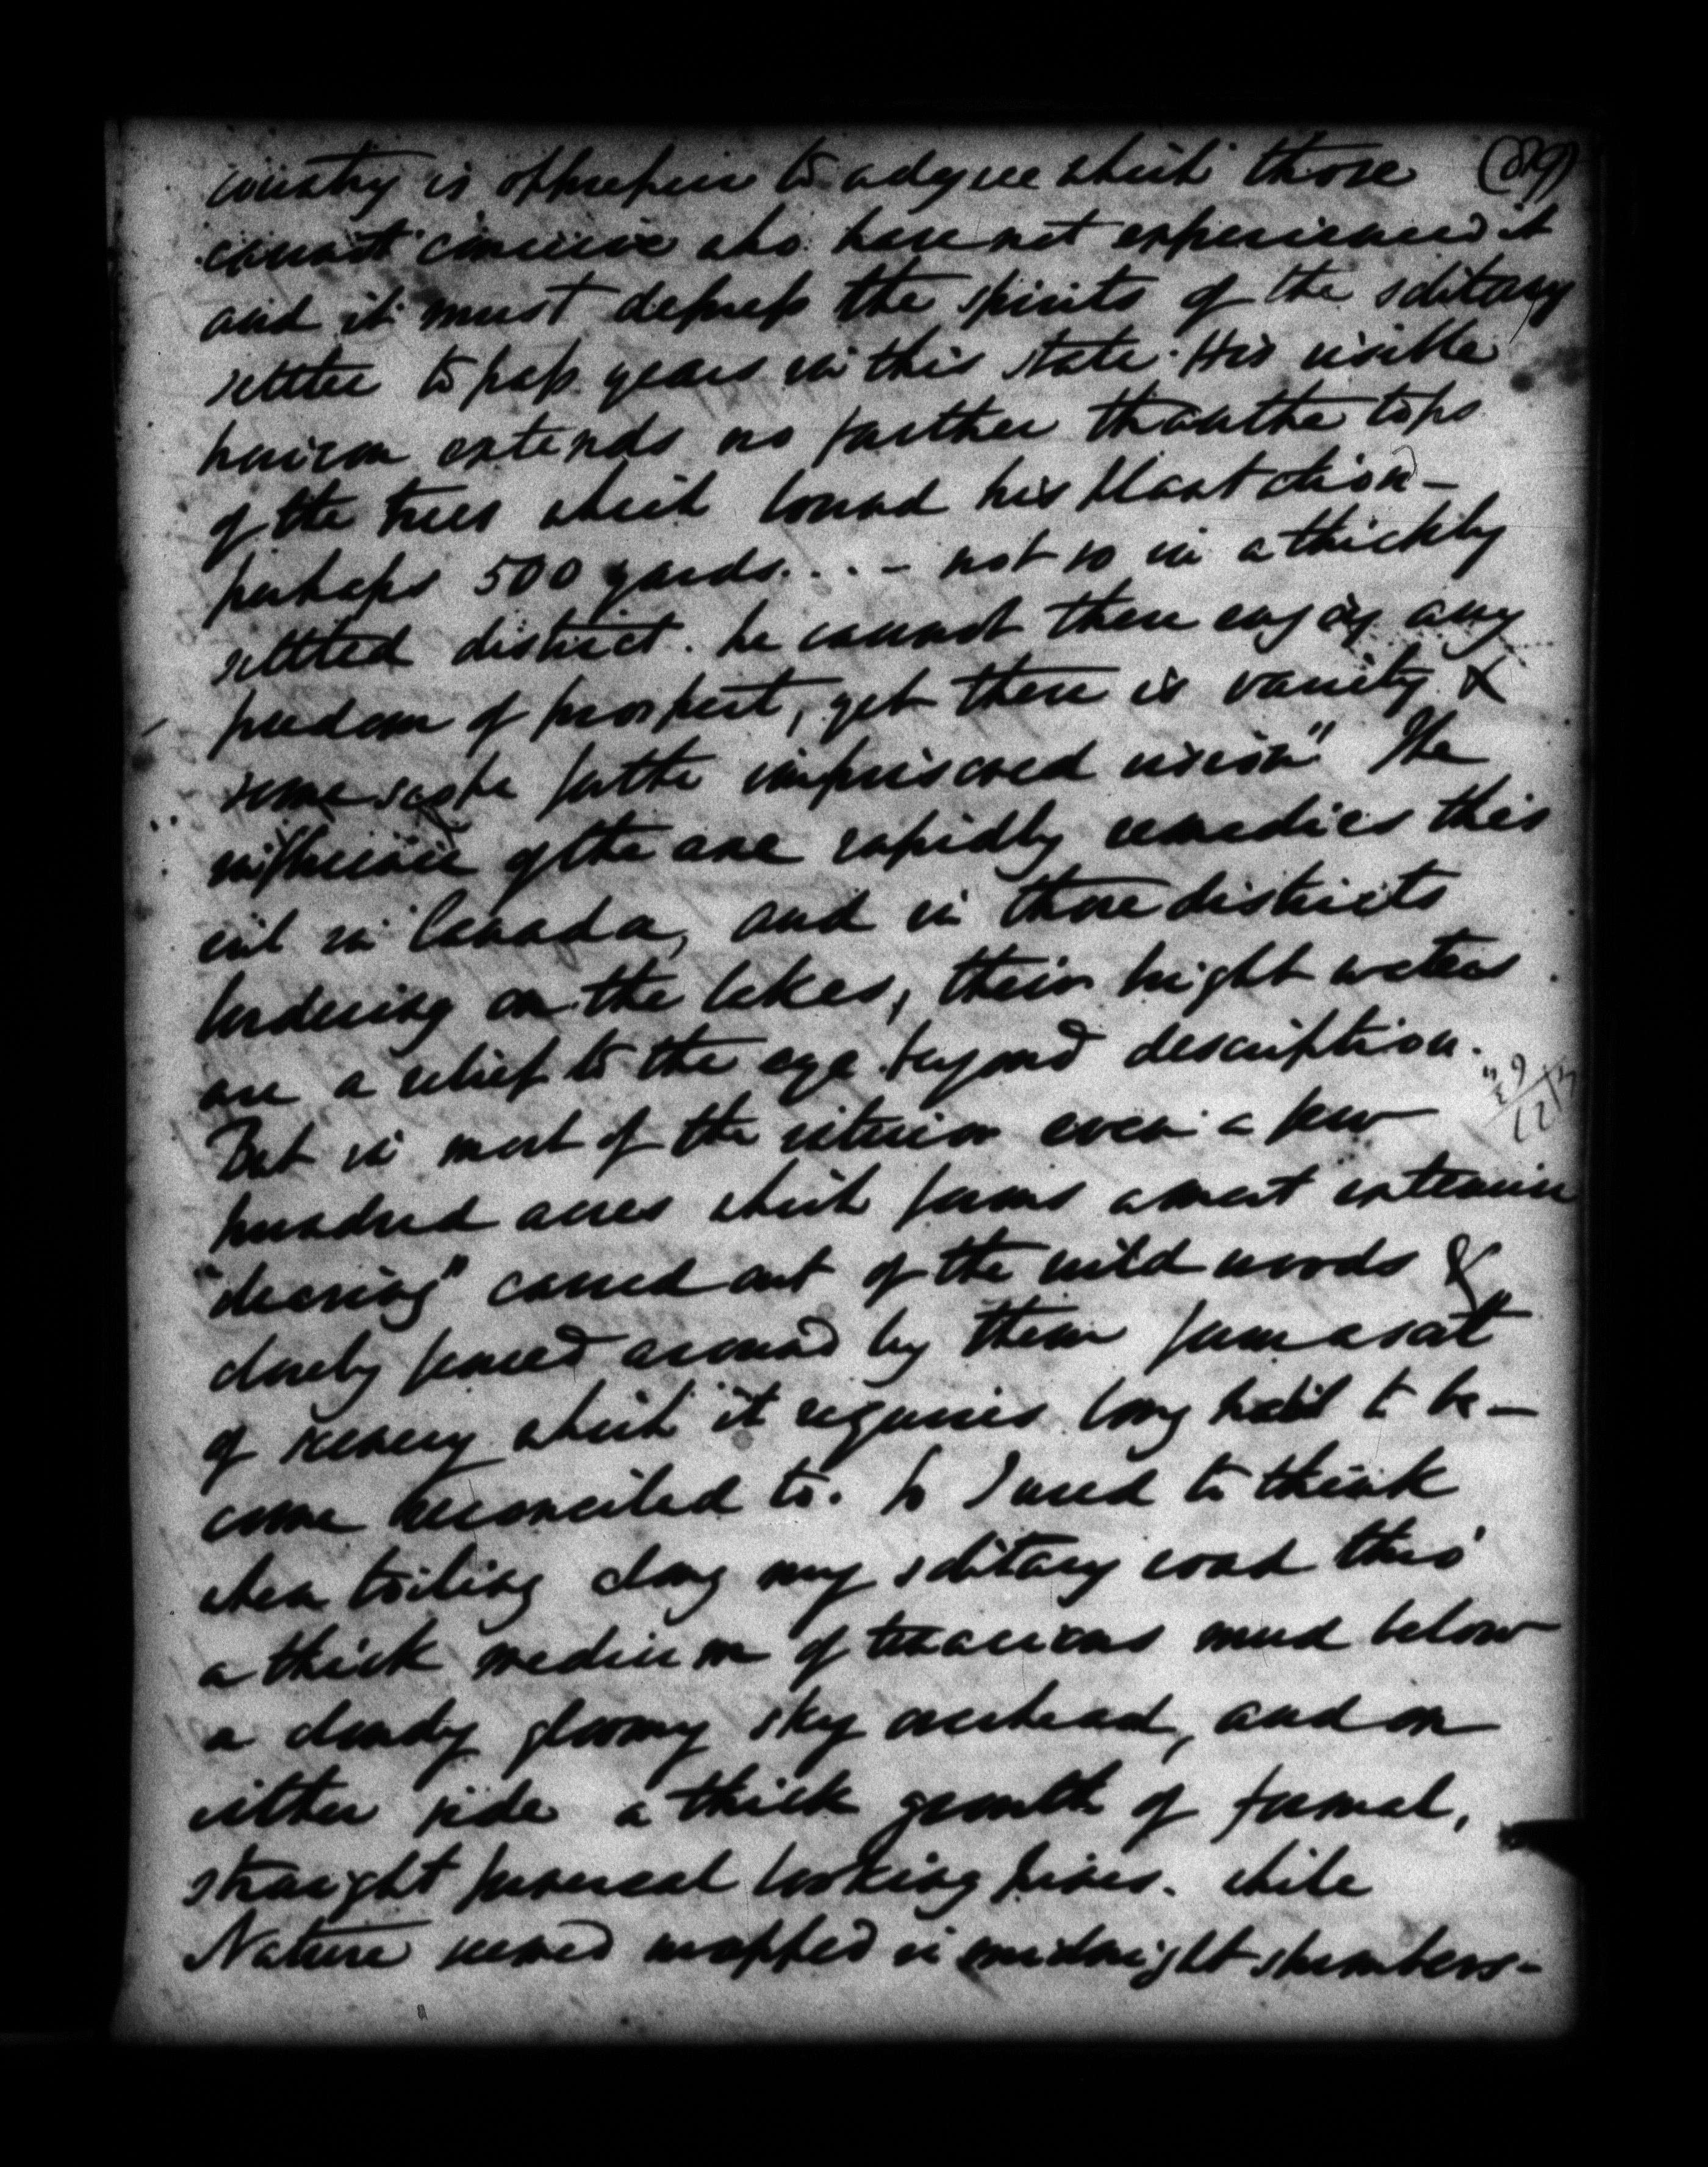 (89)
country is oppressive to a degree which those
cannot conceive who have not experienced it
and it must depress the spirits of the solitary
settler to pass years in this state. His visible
horizon extends no farther than the tops
of the trees which bound his plantation -
perhaps 500 yards. . . . - not so in a thickly
settled district. he cannot there enjoy any
freedom of prospect, yet there is variety &
some scope for the imprisoned vision" The
influence of the axe rapidly remedies this
evil in Canada, and in those districts
bordering on the lakes, their bright waters
are a relief to the eye beyond description.
But in most of the interior even a few
hundred acres which forms a most extensive
"clearing" carved out of the wild woods &
closely fenced around by them form a sort
of scenery which it requires long habit to be-
come reconciled to. So I used to think
when toiling along my solitary road thro'
a thick medium of tenacious mud below
a cloudy gloomy sky overhead, and on
either side a thick growth of formal,
straight funereal looking pines. while
Nature seemed wrapped in midnight slumbers -